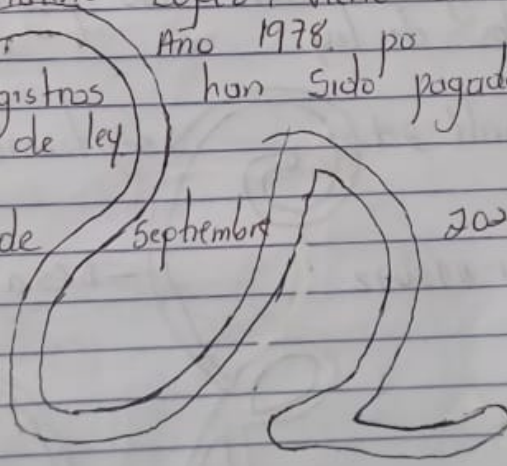 Año 1978 po
gistros han sido pagad
de ley
de Septiembre 202